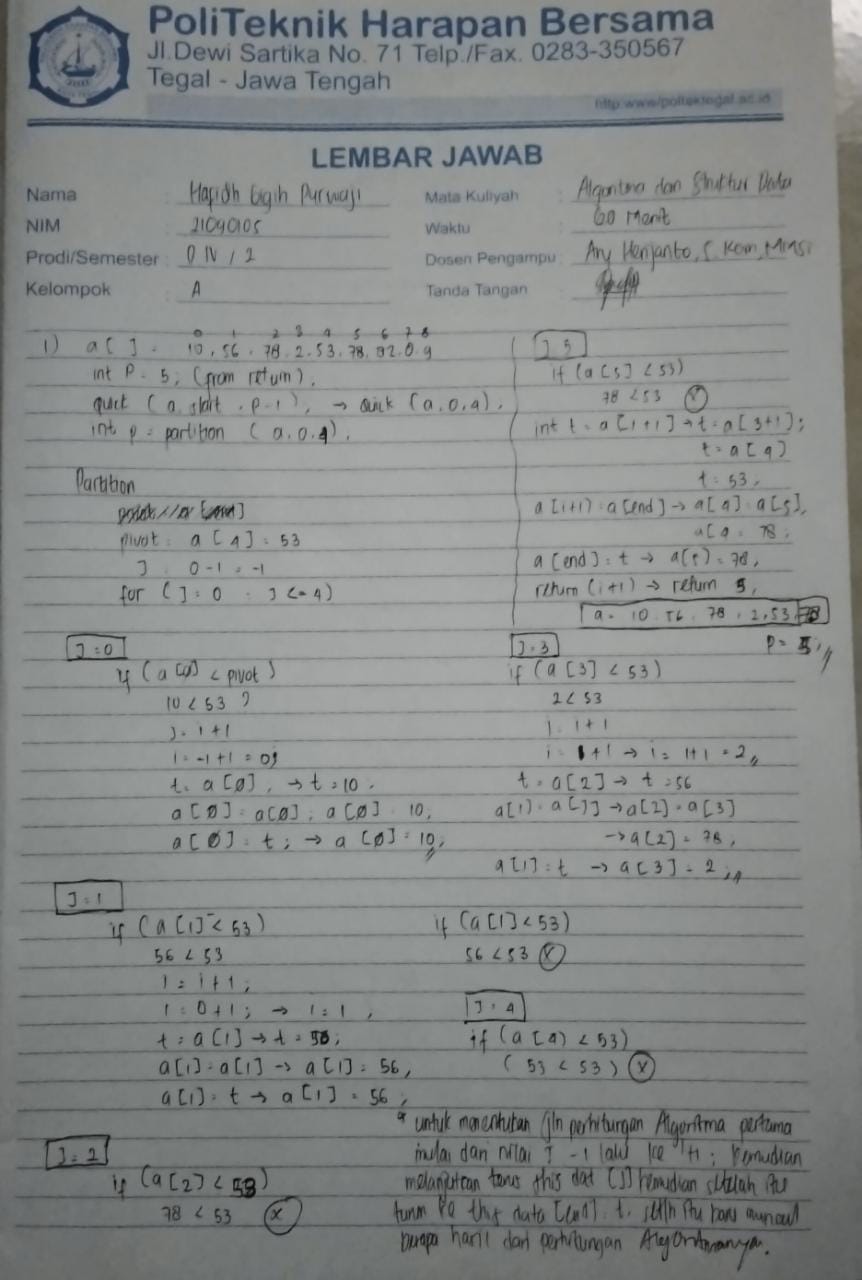 PoliTeknik Harapan Bersama
Jl.Dewi Sartika No. 71 Telp./Fax. 0283-350567
Tegal - Jawa Tengah
http:www/poltektegal.ac.id
LEMBAR JAWAB
Nama : Hafidh Gigih Purwaji
NIM : 21090105
Prodi/Semester : D IV / 2
Kelompok : A
Mata Kuliyah : Algoritma dan Struktur Data
Waktu : 60 Menit
Dosen Pengampu : Ary Herijanto, S. Kom, MMSi
Tanda Tangan :
0 1 2 3 4 5 6 7 8
1) a [ ] = 10, 56, 78, 2, 53, 78, 92, 0, 9
int P = 5; (from return),
quick (a, start, p-1), → quick (a, 0, 4),
int p = partition (a, 0, 4),
Partition
pivot = a [4] = 53
J = 0 - 1 = -1
for (J = 0 ; J <= 4)
J = 0
if (a [0] < pivot)
10 < 53 ?
J = i + 1
i = -1 + 1 = 0;
t = a [0], → t = 10.
a [0] = a[0], a [0] = 10;
a [0] = t; → a [0] = 10,
J = 1
if (a [1] < 53)
56 < 53
i = i + 1;
i = 0 + 1; → i = 1,
t = a [1] → t = 56;
a[1] = a[1] → a[1] = 56,
a[1] = t → a[1] = 56;
J = 2
if (a [2] < 53)
78 < 53 (x)
J 5
if (a [5] < 53)
78 < 53 (x)
int t = a [i+1] → t = a [3+1];
t = a [4]
t = 53,
a [i+1] = a [end] → a[4] = a[5],
a[4 = 78;
a [end] = t → a[5] = 78,
return (i+1) → return 5,
a = 10, 56, 78, 2, 53, 78
P = 5,
J = 3
if (a [3] < 53)
2 < 53
j = i + 1
i = 1 + 1 → i = 1+1 = 2,
t = a[2] → t = 56
a[i] = a[j] → a[2] = a[3]
→ a[2] = 78,
a[i] = t → a[3] = 2,
if (a [1] < 53)
56 < 53 (x)
J = 4
if (a [4] < 53)
( 53 < 53 ) (x)
* untuk menentukan jln perhitungan Algoritma pertama
mulai dari nilai J -1 lalu ke i+1; kemudian
melanjutkan terus this dat [j] kemudian setelah itu
turun ke this data [end] = t. stlh itu baru muncul
berapa hasil dari perhitungan Algoritmanya.